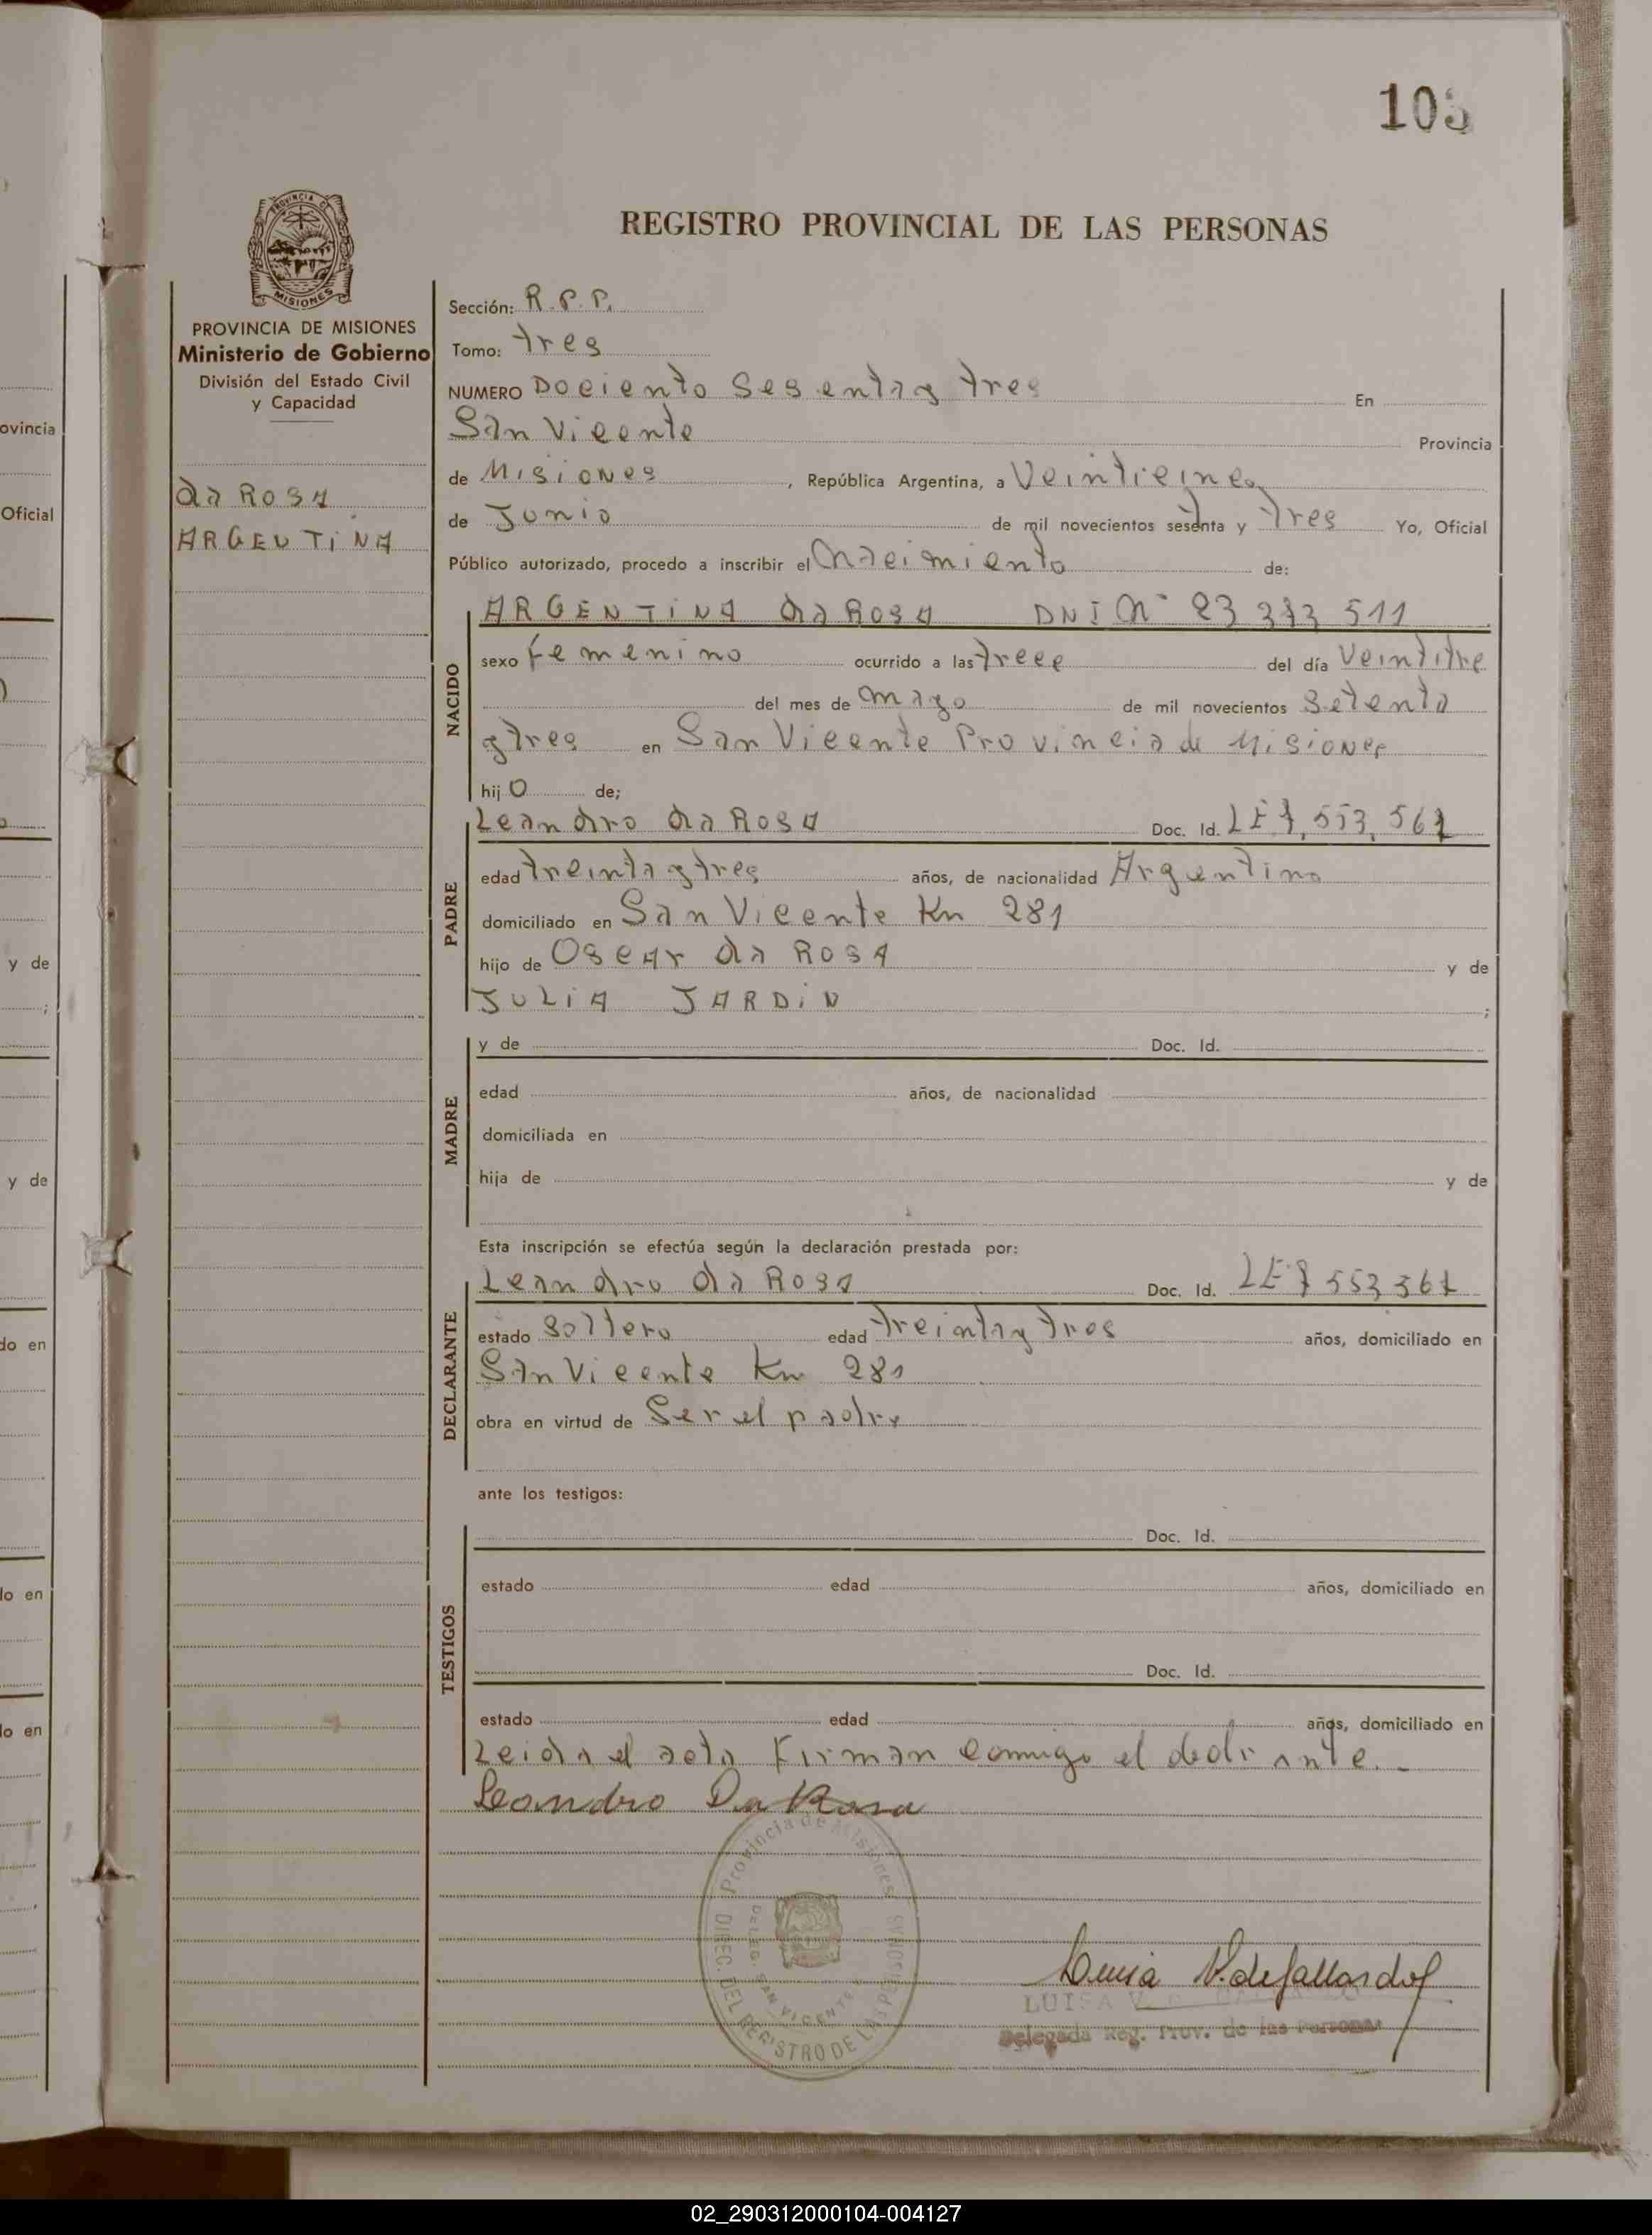 103
PROVINCIA DE
MISIONES
REGISTRO PROVINCIAL DE LAS PERSONAS
PROVINCIA DE MISIONES
Ministerio de Gobierno
División del Estado Civil
y Capacidad
da ROSA
ARGENTINA
Sección: R.P.P.
Tomo: tres
NUMERO Dociento Sesentay tres En
San Vicente Provincia
de Misiones, República Argentina, a Veinticinco
de Junio de mil novecientos sesenta y tres Yo, Oficial
Público autorizado, procedo a inscribir el nacimiento de:
NACIDO
ARGENTINA da ROSA DNI N° 23 373 511
sexo femenino ocurrido a las trece del día Veintitre
del mes de mayo de mil novecientos Setenta
y tres en San Vicente Provincia de Misiones
hijo de;
PADRE
Leandro da ROSA Doc. Id. LE 7,553,567
edad treinta y tres años, de nacionalidad Argentino
domiciliado en San Vicente Km 281
hijo de Oscar da ROSA y de
JULIA JARDIN ;
MADRE
y de Doc. Id.
edad años, de nacionalidad
domiciliada en
hija de y de
Esta inscripción se efectúa según la declaración prestada por:
DECLARANTE
Leandro da Rosa Doc. Id. LE 7 553 567
estado Soltero edad treintay tres años, domiciliado en
San Vicente Km 281
obra en virtud de Ser el padre
ante los testigos:
TESTIGOS
Doc. Id.
estado edad años, domiciliado en
Doc. Id.
estado edad años, domiciliado en
Leida el acta Firman conmigo el
Leandro Da Rosa
Provincia de Misiones
DIREC. DEL REGISTRO DE LAS PERSONAS
DELEG. SAN VICENTE
Luisa V. de Gallardo
LUISA V. DE GALLARDO
Delegada Reg. Prov. de las Personas
ovincia
Oficial
y de
;
y de
do en
lo en
lo en
02_290312000104-004127